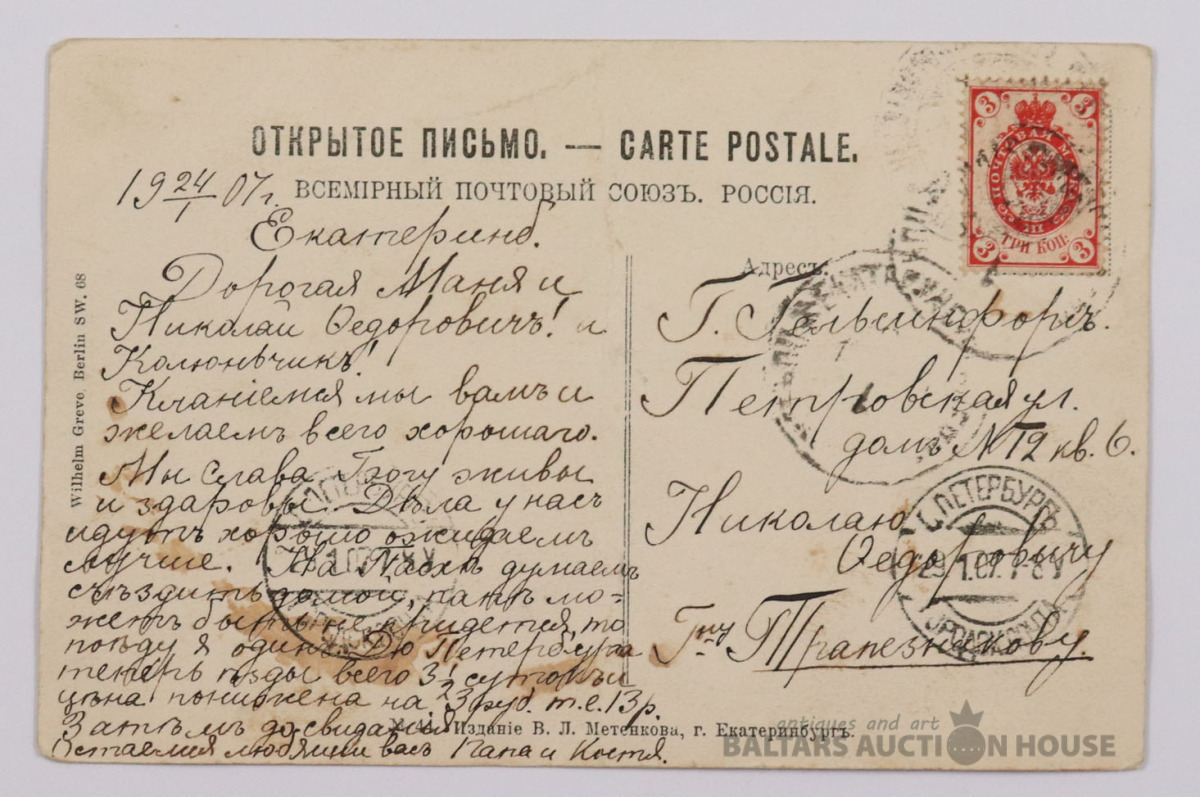 ОТКРЫТОЕ ПИСЬМО. — CARTE POSTALE.
ВСЕМІРНЫЙ ПОЧТОВЫЙ СОЮЗЪ. РОССІЯ.
19 24/1 07 г.
Екатеринб.
Дорогая Маня и
Николай Ѳедоровичъ! и
Колюньчикъ!
Кланіемся мы вамъ и
желаемъ всего хорошаго.
Мы слава Богу живы
и здаровы. Дѣла у насъ
идутъ хорошо ожидаемъ
лучше. На Пасхѣ думаемъ
съѣздить домой, папѣ мо=
жетъ быть не придется, то
поѣду я одинъ. До Петербурга
теперь ѣзды всего 3½ сутокъ и
цѣна понижена на 23 руб. т.е. 13 р.
Затѣмъ до свиданія
Остаемся любящіи васъ Папа и Костя.
Адресъ.
Г. Гельсинфорсъ.
Петровская ул.
домъ № 12 кв. 6.
Николаю
Ѳедоровичу
Гну Трапезникову.
3 3
ТРИ КОП.
3 3
С.ПЕТЕРБУРГЪ
29.1.07. 7-8 V
Wilhelm Greve, Berlin SW. 68
Изданіе В. Л. Метенкова, г. Екатеринбургъ.
antiques and art
BALTARS AUCTION HOUSE